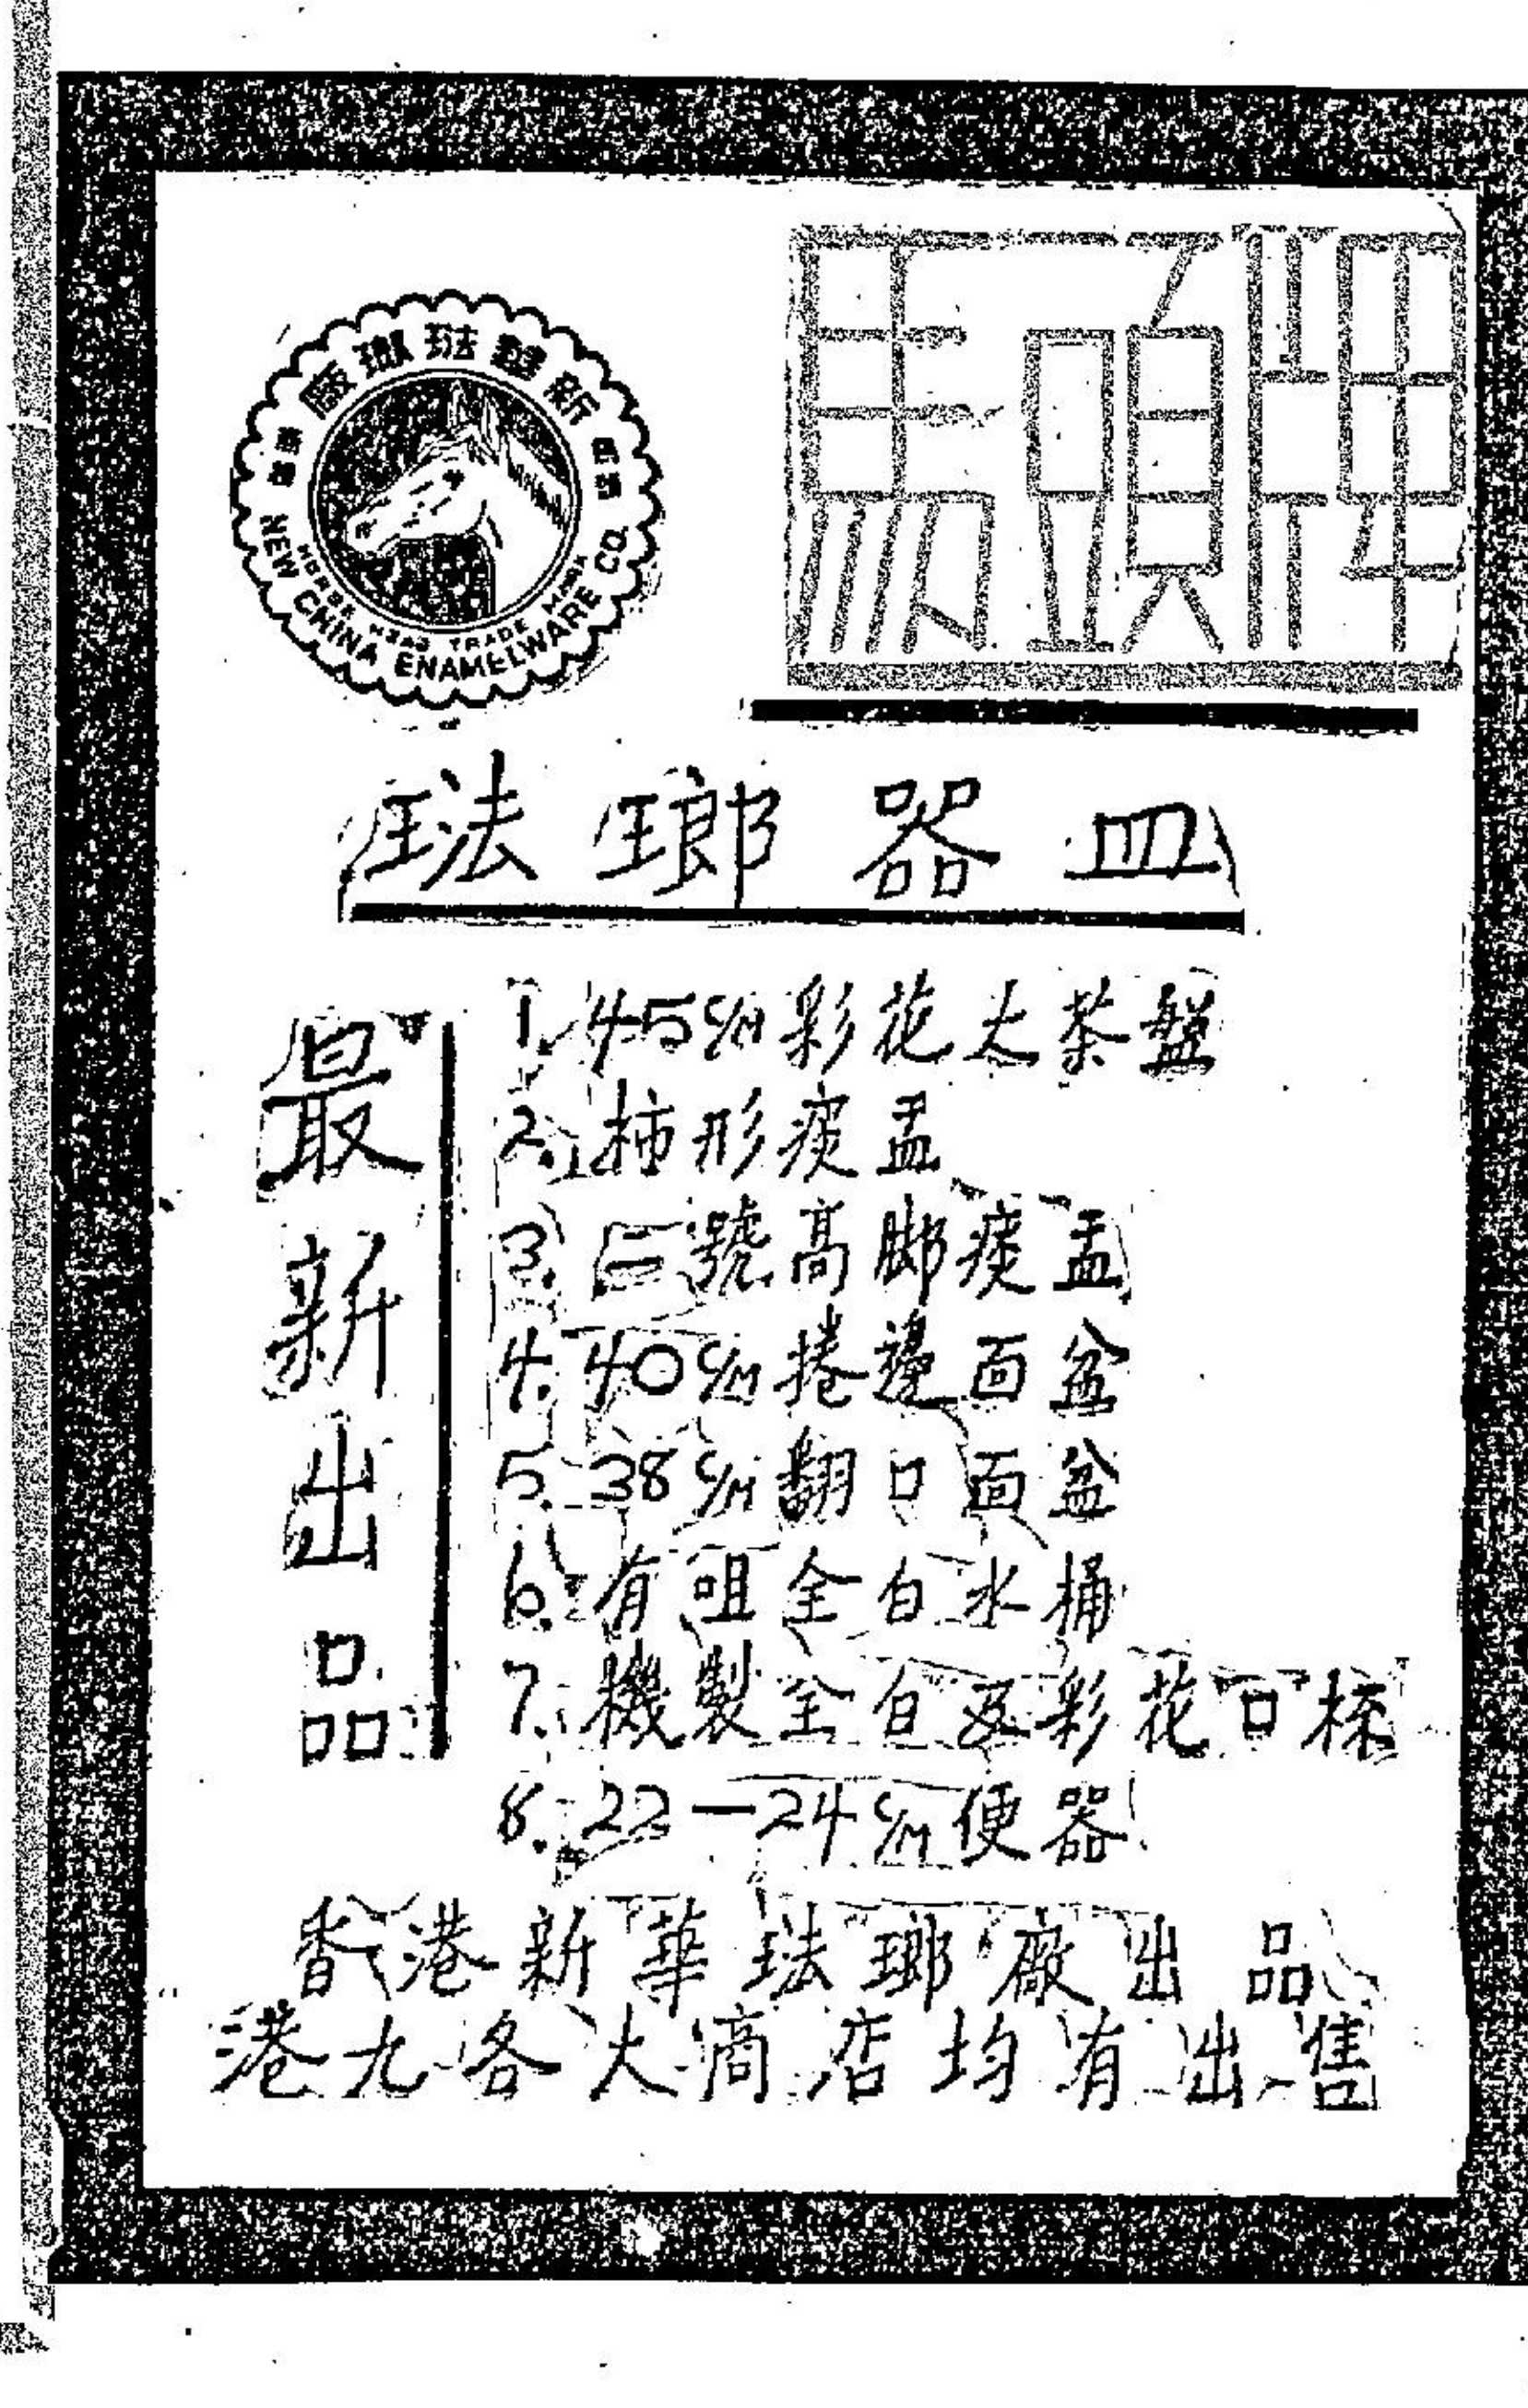 馬頭牌
新華琺瑯廠
註冊 商標
NEW CHINA ENAMELWARE CO.
HORSE HEAD TRADE MARK
琺瑯器皿
最新出品
1. 45c/m彩花大茶盤
2. 柿形痰盂
3. 二號高脚痰盂
4. 40c/m捲邊面盆
5. 38c/m翻口面盆
6. 有咀全白水桶
7. 機製全白及彩花口杯
8. 22—24c/m便器
香港新華琺瑯廠出品
港九各大商店均有出售